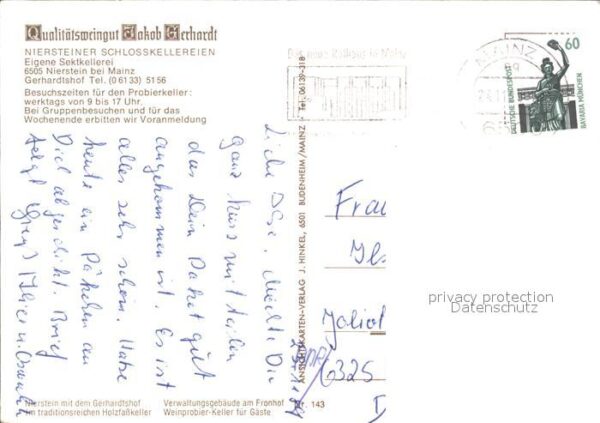 Qualitätsweingut Jakob Gerhardt
NIERSTEINER SCHLOSSKELLEREIEN
Eigene Sektkellerei
6505 Nierstein bei Mainz
Gerhardtshof Tel. (0 61 33) 51 56
Besuchszeiten für den Probierkeller:
werktags von 9 bis 17 Uhr.
Bei Gruppenbesuchen und für das
Wochenende erbitten wir Voranmeldung
Das neue Rathaus in Mainz
MAINZ
60
DEUTSCHE BUNDESPOST
BAVARIA MÜNCHEN
Liebe Ilse, Möchte Dir
ganz kurz mitteilen
das Dein Paket gut
angekommen ist. Es ist
alles sehr schön. Habe
heute ein Päckchen an
Dich abgeschickt. Brief
folgt
ANSICHTSKARTEN-VERLAG J. HINKEL, 6501 BUDENHEIM/MAINZ · Tel. 06139-318
Frau
Joliot
6325
privacy protection
Datenschutz
Nierstein mit dem Gerhardtshof
im traditionsreichen Holzfaßkeller
Verwaltungsgebäude am Fronhof
Weinprobier-Keller für Gäste
Nr. 143